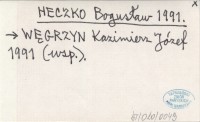 HECZKO Bogusław 1991.
→ WĘGRZYN Kazimierz Józef
1991 (wsp.).